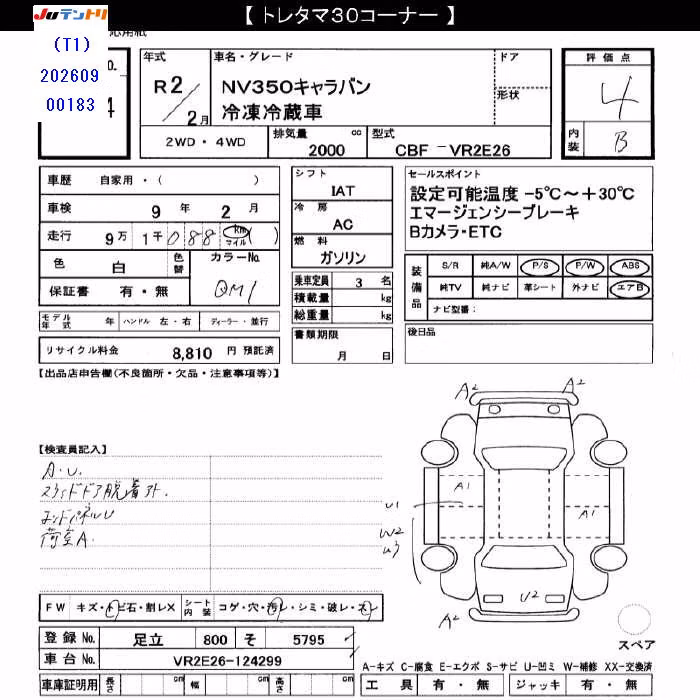 【トレタマ30コーナー】
JUテントリ
(T1)
202609
00183
年式
R2/2月
車名・グレード
NV350キャラバン
冷凍冷蔵車
ドア
形状
評価点
4
内装
B
2WD・4WD
排気量 cc
2000
型式
CBF-VR2E26
車歴 自家用・( )
車検 9年 2月
走行 9万 1千 088 km マイル ( )
色 白
色替
カラーNo.
QM1
保証書 有・無
シフト
IAT
冷房
AC
燃料
ガソリン
乗車定員 3 名
積載量 kg
総重量 kg
セールスポイント
設定可能温度 -5℃～+30℃
エマージェンシーブレーキ
Bカメラ・ETC
装備品
S/R 純A/W P/S P/W ABS
純TV 純ナビ 革シート 外ナビ エアB
ナビ型番:
モデル年式 年 ハンドル 左・右 ディーラー・並行
リサイクル料金 8,810 円 預託済
書類期限
月 日
後日品
【出品店申告欄(不良箇所・欠品・注意事項等)】
【検査員記入】
A.U.
スライドドア脱着外.
エンドパネルU
荷室A.
A2
A2
A1
A1
U1
W2
U3
U2
A2
FW キズ・トビ石・割レX
シート内装 コゲ・穴・汚レ・シミ・破レ・スレ
登録No. 足立 800 そ 5795
車台No. VR2E26-124299
スペア
A-キズ C-腐食 E-エクボ S-サビ U-凹ミ W-補修 XX-交換済
車庫証明用 長さ cm 幅 cm 高さ cm
工具 有・無 ジャッキ 有・無